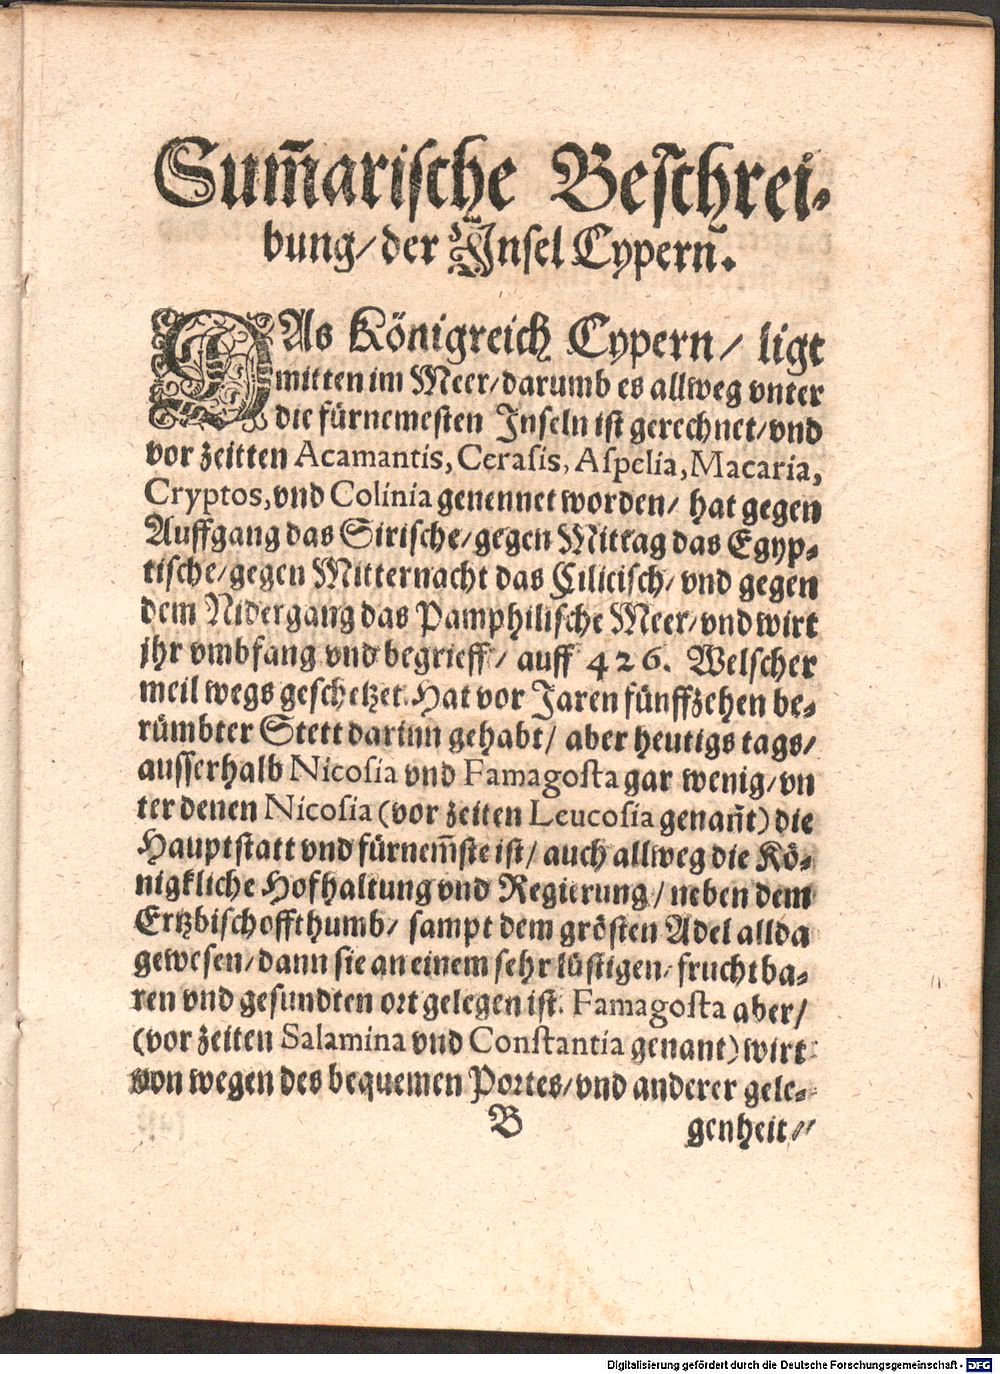 Sum̄arische Beschrei-
bung/ der Insel Cypern̄.
DAs Königreich Cypern/ ligt
mitten im Meer/ darumb es allweg vnter
die fürnemesten Inseln ist gerechnet/ vnd
vor zeitten Acamantis, Cerasis, Aspelia, Macaria,
Cryptos, vnd Colinia genennet worden/ hat gegen
Auffgang das Sirische/ gegen Mittag das Egyp-
tische/ gegen Mitternacht das Cilicisch/ vnd gegen
dem Nidergang das Pamphilische Meer/ vnd wirt
jhr vmbfang vnd begrieff/ auff 426. Welscher
meil wegs geschetzet. Hat vor Jaren fünffzehen be-
rümbter Stett darinn gehabt/ aber heutigs tags/
ausserhalb Nicosia vnd Famagosta gar wenig/ vn
ter denen Nicosia (vor zeiten Leucosia genan̄t) die
Hauptstatt vnd fürnem̄ste ist/ auch allweg die Kö-
nigkliche Hofhaltung vnd Regierung/ neben dem
Ertzbischoffthumb/ sampt dem grösten Adel allda
gewesen/ dann sie an einem sehr lüstigen/ fruchtba-
ren vnd gesundten ort gelegen ist. Famagosta aber/
(vor zeiten Salamina vnd Constantia genant) wirt
von wegen des bequemen Portes/ vnd anderer gele-
B genheit/
Digitalisierung gefördert durch die Deutsche Forschungsgemeinschaft - DFG